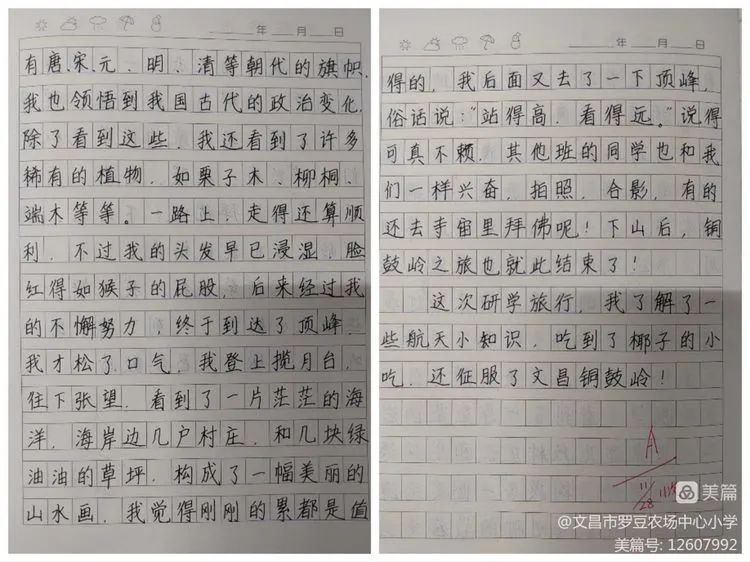 年 月 日
有唐、宋、元、明、清等朝代的旗帜,
我也领悟到我国古代的政治变化,
除了看到这些,我还看到了许多
稀有的植物,如栗子木、柳桐、
端木等等。一路上,走得还算顺
利,不过我的头发早已浸湿,脸
红得如猴子的屁股,后来经过我
的不懈努力,终于到达了顶峰,
我才松了口气,我登上揽月台,
住下张望,看到了一片茫茫的海
洋,海岸边几户村庄,和几块绿
油油的草坪,构成了一幅美丽的
山水画,我觉得刚刚的累都是值
年 月 日
得的,我后面又去了一下顶峰,
俗话说:“站得高,看得远。”说得
可真不赖,其他班的同学也和我
们一样兴奋,拍照,合影,有的
还去寺宙里拜佛呢!下山后,铜
鼓岭之旅也就此结束了!
这次研学旅行,我了解了一
些航天小知识,吃到了椰子的小
吃,还征服了文昌铜鼓岭!
A
11/28
美篇
@文昌市罗豆农场中心小学
美篇号: 12607992